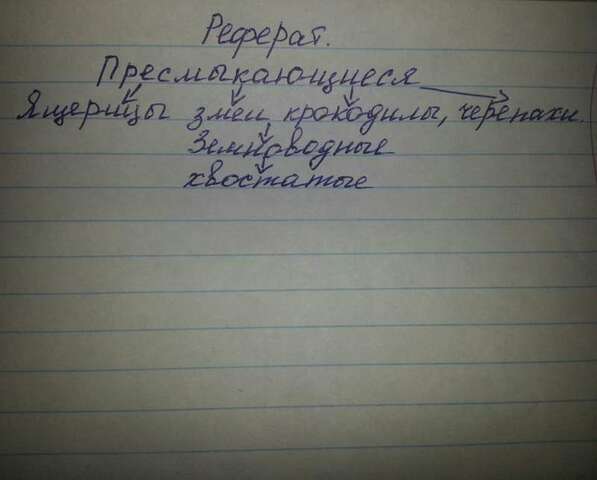 Реферат.
Пресмыкающиеся
Ящерицы змеи крокодилы, черепахи.
Земноводные
хвостатые